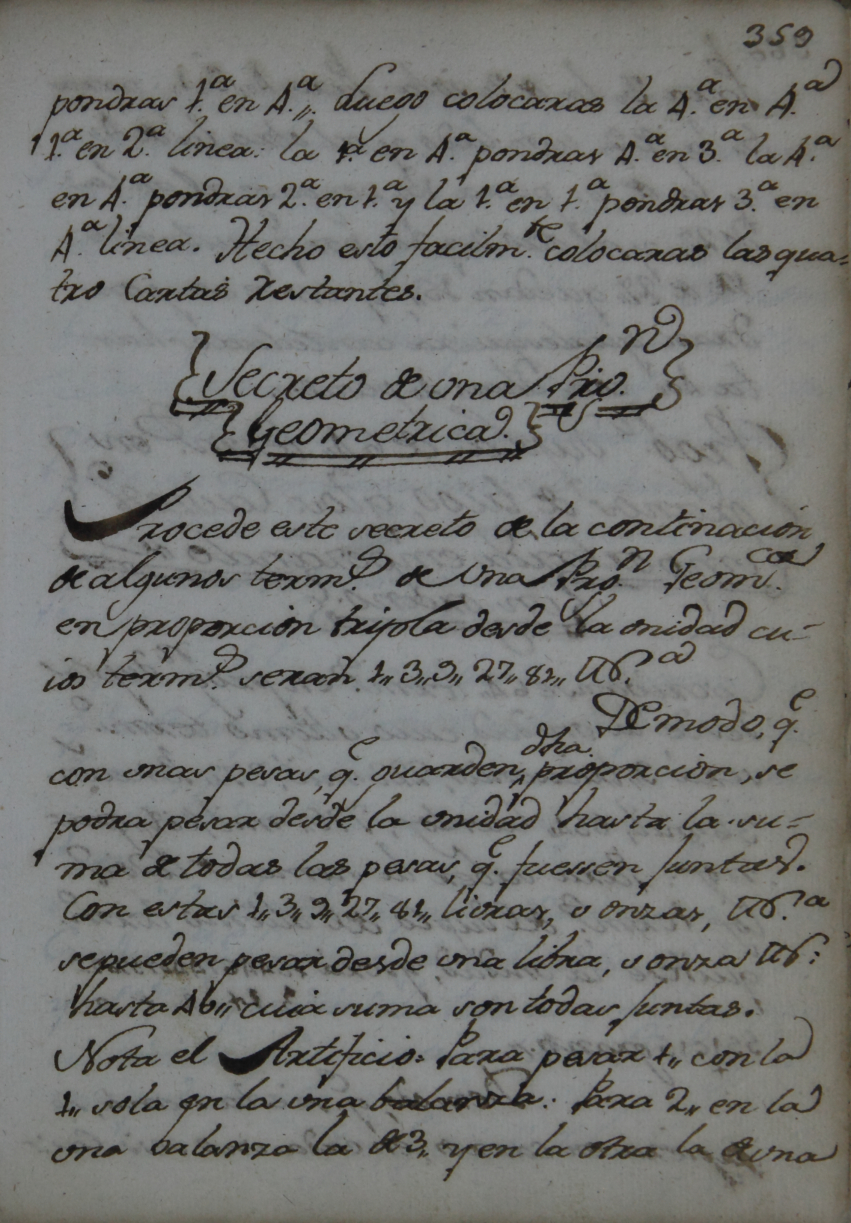 359
pondras 1.ª en 4.ª,, Luego colocaras la 4.ª en 4.ª
1.ª en 2.ª linea: la 1.ª en 4.ª pondras 4.ª en 3.ª la 4.ª
en 4.ª pondras 2.ª en 1.ª y la 1.ª en 1.ª pondras 3.ª en
4.ª linea. Hecho esto facilm.te colocaras las qua=
tro Cartas restantes.
Secreto de una Pro.n
Geometrica.
Procede este secreto de la continacion
de algunos term.s de una Pro.n Geom.ca
en proporcion tripla desde la unidad cu-
ios term.s seran 1,, 3,, 9,, 27,, 81,,
De modo, q.e
con unas pesas, q.e guarden,, dha proporcion, se
podra pesar desde la unidad hasta la su-
ma de todas las pesas, q.e fuessen juntas.
Con estas 1,, 3,, 9,, 27,, 81,, livras, u onzas,
se pueden pesar desde una libra, u onza
hasta cuia suma son todas juntas.
Nota el Artificio: Para pesar 1,, con la
1,, sola en la una balanza. Para 2,, en la
una balanza la de 3,, y en la otra la de una